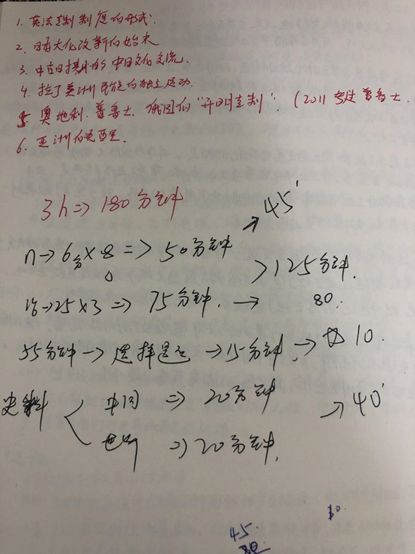 1. 英法走到制度的形式.
2. 日本大化改新的始末
3. 中古日本时的中日文化交流.
4. 拉丁美洲民族的独立运动.
5. 奥地利. 普鲁士. 俄国的“开明专制”. (2011 考过普鲁士.
6. 亚洲的觉醒.
3h => 180分钟
→ 45'
n → 6分 × 8 => 50分钟
> 125分钟.
25 × 3 => 75分钟. → 80.
55分钟 → 选择题 → 15分钟. → 10.
史料 < 中国 => 20分钟
→ 40'
世界 => 20分钟.
45.
80